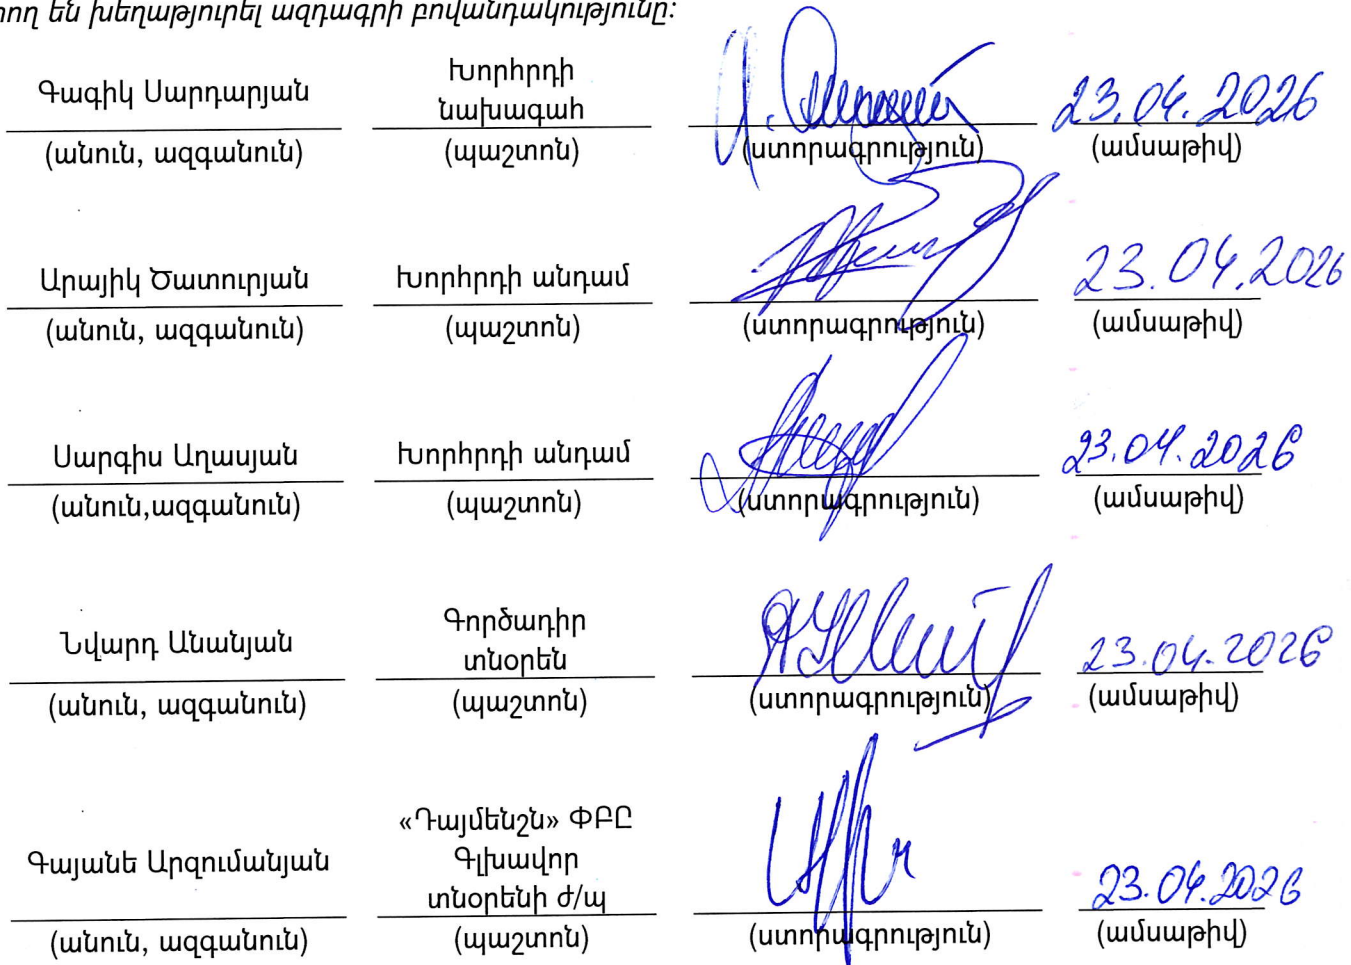 են խեղաթյուրել ազդագրի բովանդակությունը:
Գագիկ Սարդարյան
Խորհրդի
նախագահ
23.04.2026
(անուն, ազգանուն)
(պաշտոն)
(ստորագրություն)
(ամսաթիվ)
Արայիկ Ծատուրյան
Խորհրդի անդամ
23.04.2026
(անուն, ազգանուն)
(պաշտոն)
(ստորագրություն)
(ամսաթիվ)
Սարգիս Աղասյան
Խորհրդի անդամ
23.04.2026
(անուն,ազգանուն)
(պաշտոն)
(ստորագրություն)
(ամսաթիվ)
Նվարդ Անանյան
Գործադիր
տնօրեն
23.04.2026
(անուն, ազգանուն)
(պաշտոն)
(ստորագրություն)
(ամսաթիվ)
Գայանե Արզումանյան
«Դայմենշն» ՓԲԸ
Գլխավոր
տնօրենի ժ/պ
23.04.2026
(անուն, ազգանուն)
(պաշտոն)
(ստորագրություն)
(ամսաթիվ)